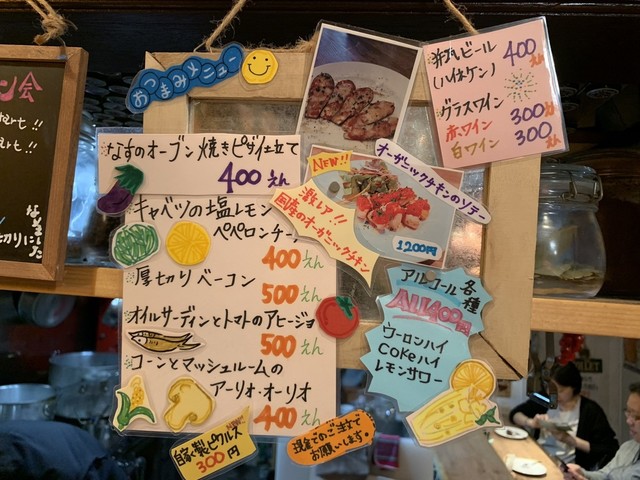 おつまみメニュー
なすのオーブン焼きピザ仕立て
400えん
キャベツの塩レモン
ペペロンチーノ
400えん
厚切りベーコン
500えん
オイルサーディンとトマトのアヒージョ
500えん
コーンとマッシュルームの
アーリオ・オーリオ
400えん
自家製ピクルス
300円
現金でのご注文で
お願いします!
NEW!!
激レア!!
国産のオーガニックチキン
オーガニックチキンのソテー
1200円
ビール
(ハイネケン)
400えん
グラスワイン
赤ワイン 300えん
白ワイン 300
アルコール各種
ALL400円
ウーロンハイ
Cokeハイ
レモンサワー
会
!!
!!
切りに